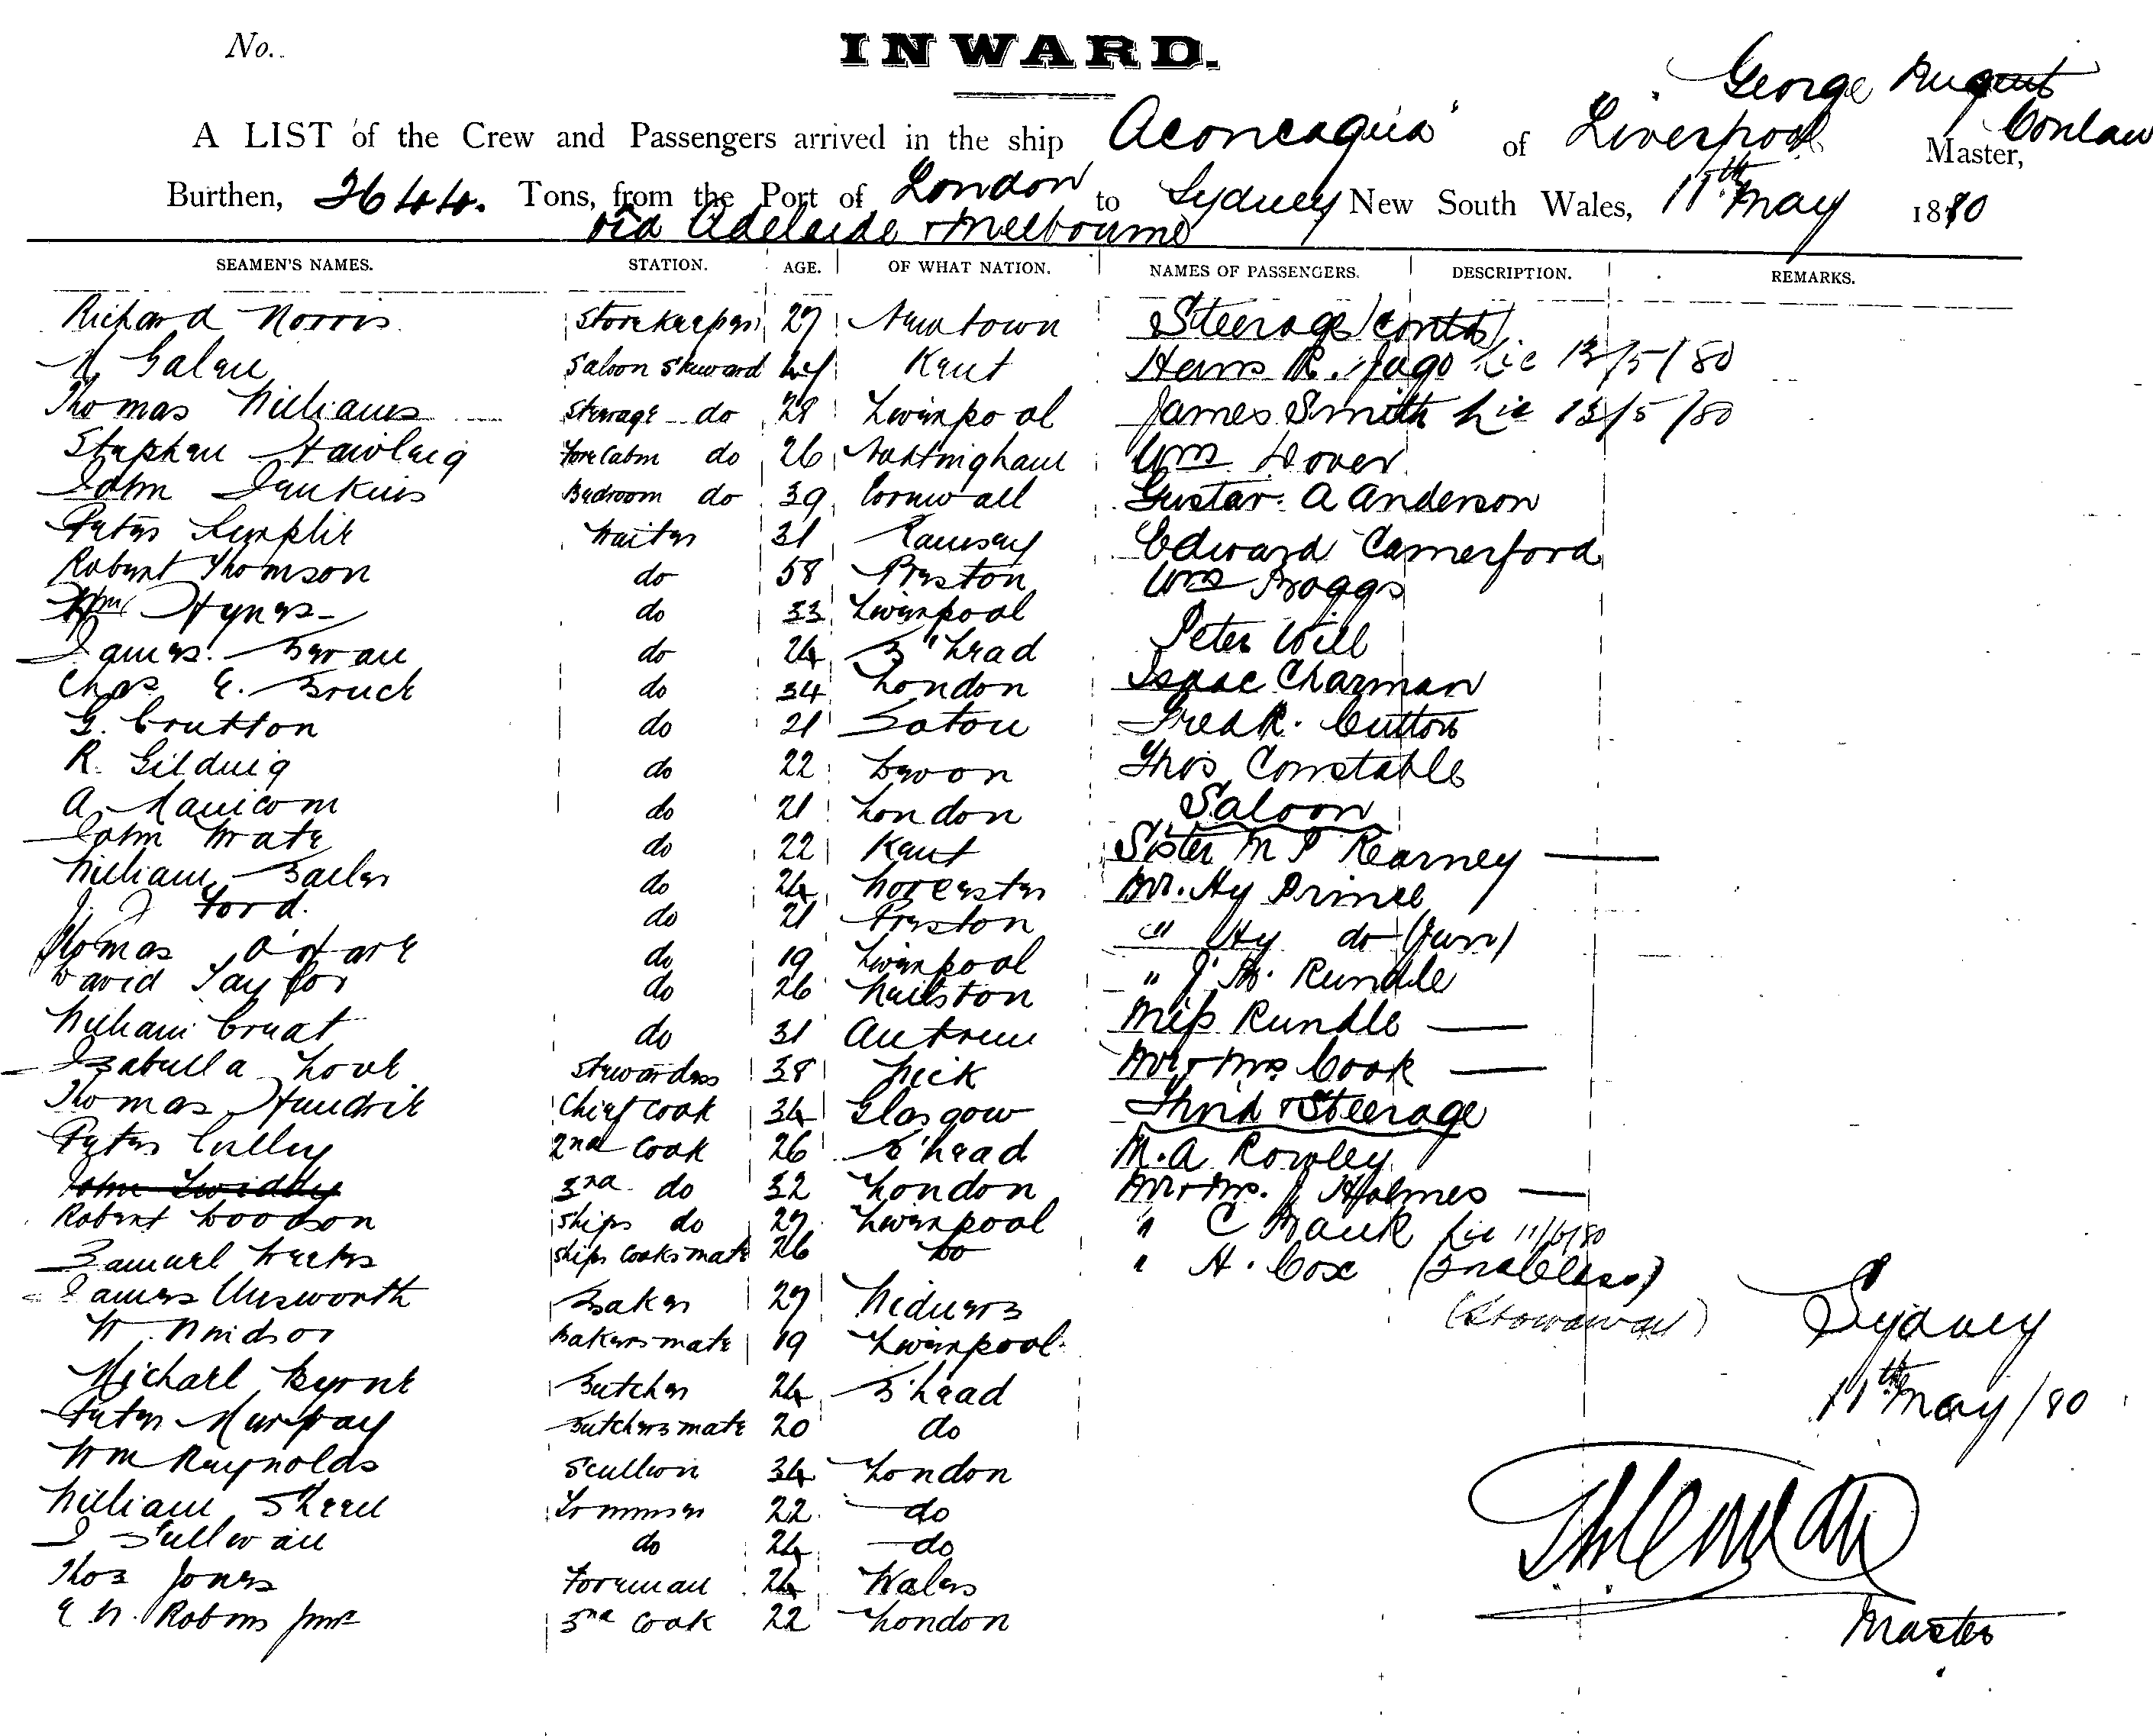 No.
INWARD.
George August Conlan
A LIST of the Crew and Passengers arrived in the ship "Aconcagua" of Liverpool Master,
Burthen, 2644. Tons, from the Port of London to Sydney New South Wales, 11th May 1880
via Adelaide & Melbourne
SEAMEN'S NAMES. STATION. AGE. OF WHAT NATION. NAMES OF PASSENGERS. DESCRIPTION. REMARKS.
Richard Norris Storekeeper 27 Newtown Steerage (contd)
Saloon Steward 24 Kent R. Jago 13/5/80
Thomas Williams Steerage do 28 Liverpool James Smith 13/5/80
Stephen Fore Cabin do 26 Nottingham Wm Dover
John Jenkins Bedroom do 39 Cornwall Gustav. A Anderson
Peter Waiter 31 Ramsey Edward Camerford
Robert Thomson do 58 Preston Wm Boggs
Wm Hynes do 33 Liverpool Peter Will
James Bevan do 24 B'head Isaac Charman
Chas E. do 34 London Fredk. Cutton
G. Crutton do 21 Thos Constable
R. Gilding do 22 Devon Saloon
A. Manicom do 21 London Sister M P Kearney
John Wate do 22 Kent Mr. Hy Prince
William do 24 Worcester " Hy do (Jun)
J. J Ford. do 21 Preston " J. Rundle
Thomas O'Hare do 19 Liverpool Miss Rundle
David Taylor do 26 Mr & Mrs Cook
William do 31 Antrim Third & Steerage
Isabella Love Stewardess 38 Wick M. A Rowley
Thomas Chief Cook 34 Glasgow Mr & Mrs. J Holmes
Peter Culley 2nd Cook 26 B'head " C
John Twiddy 3rd do 32 London " H. Cox
Robert Woodson Ships do 27 Liverpool (Stowaway)
Samuel Weeks Ships Cooks mate 26 Do
James Unsworth Baker 27 Widnes
W. Windsor Bakers mate 19 Liverpool
Michael Byrne Butcher 24 B'head
Peter Murray Butchers mate 20 do
Wm Reynolds Scullion 34 London
William 22 do
J Sullivan do 24 do
Thos Jones Foreman 24 Wales
Robins Junr 3rd Cook 22 London
Sydney
11th May/80
Master